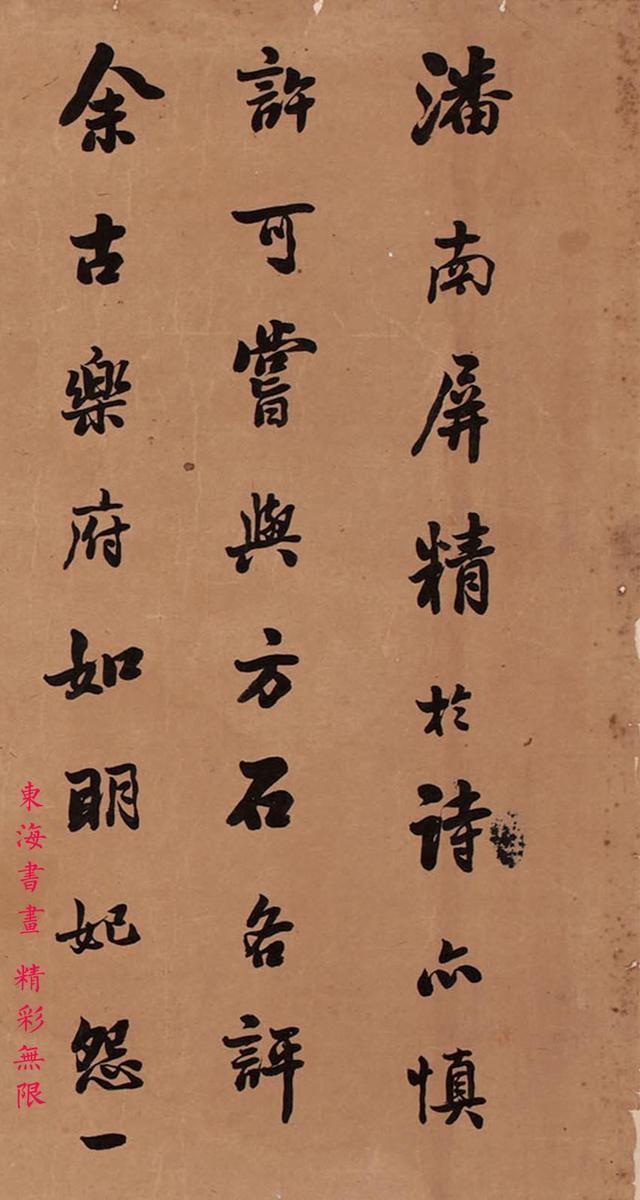 潘南屏精於詩亦慎
許可嘗與方石各評
余古樂府如明妃怨一
東海書畫 精彩無限